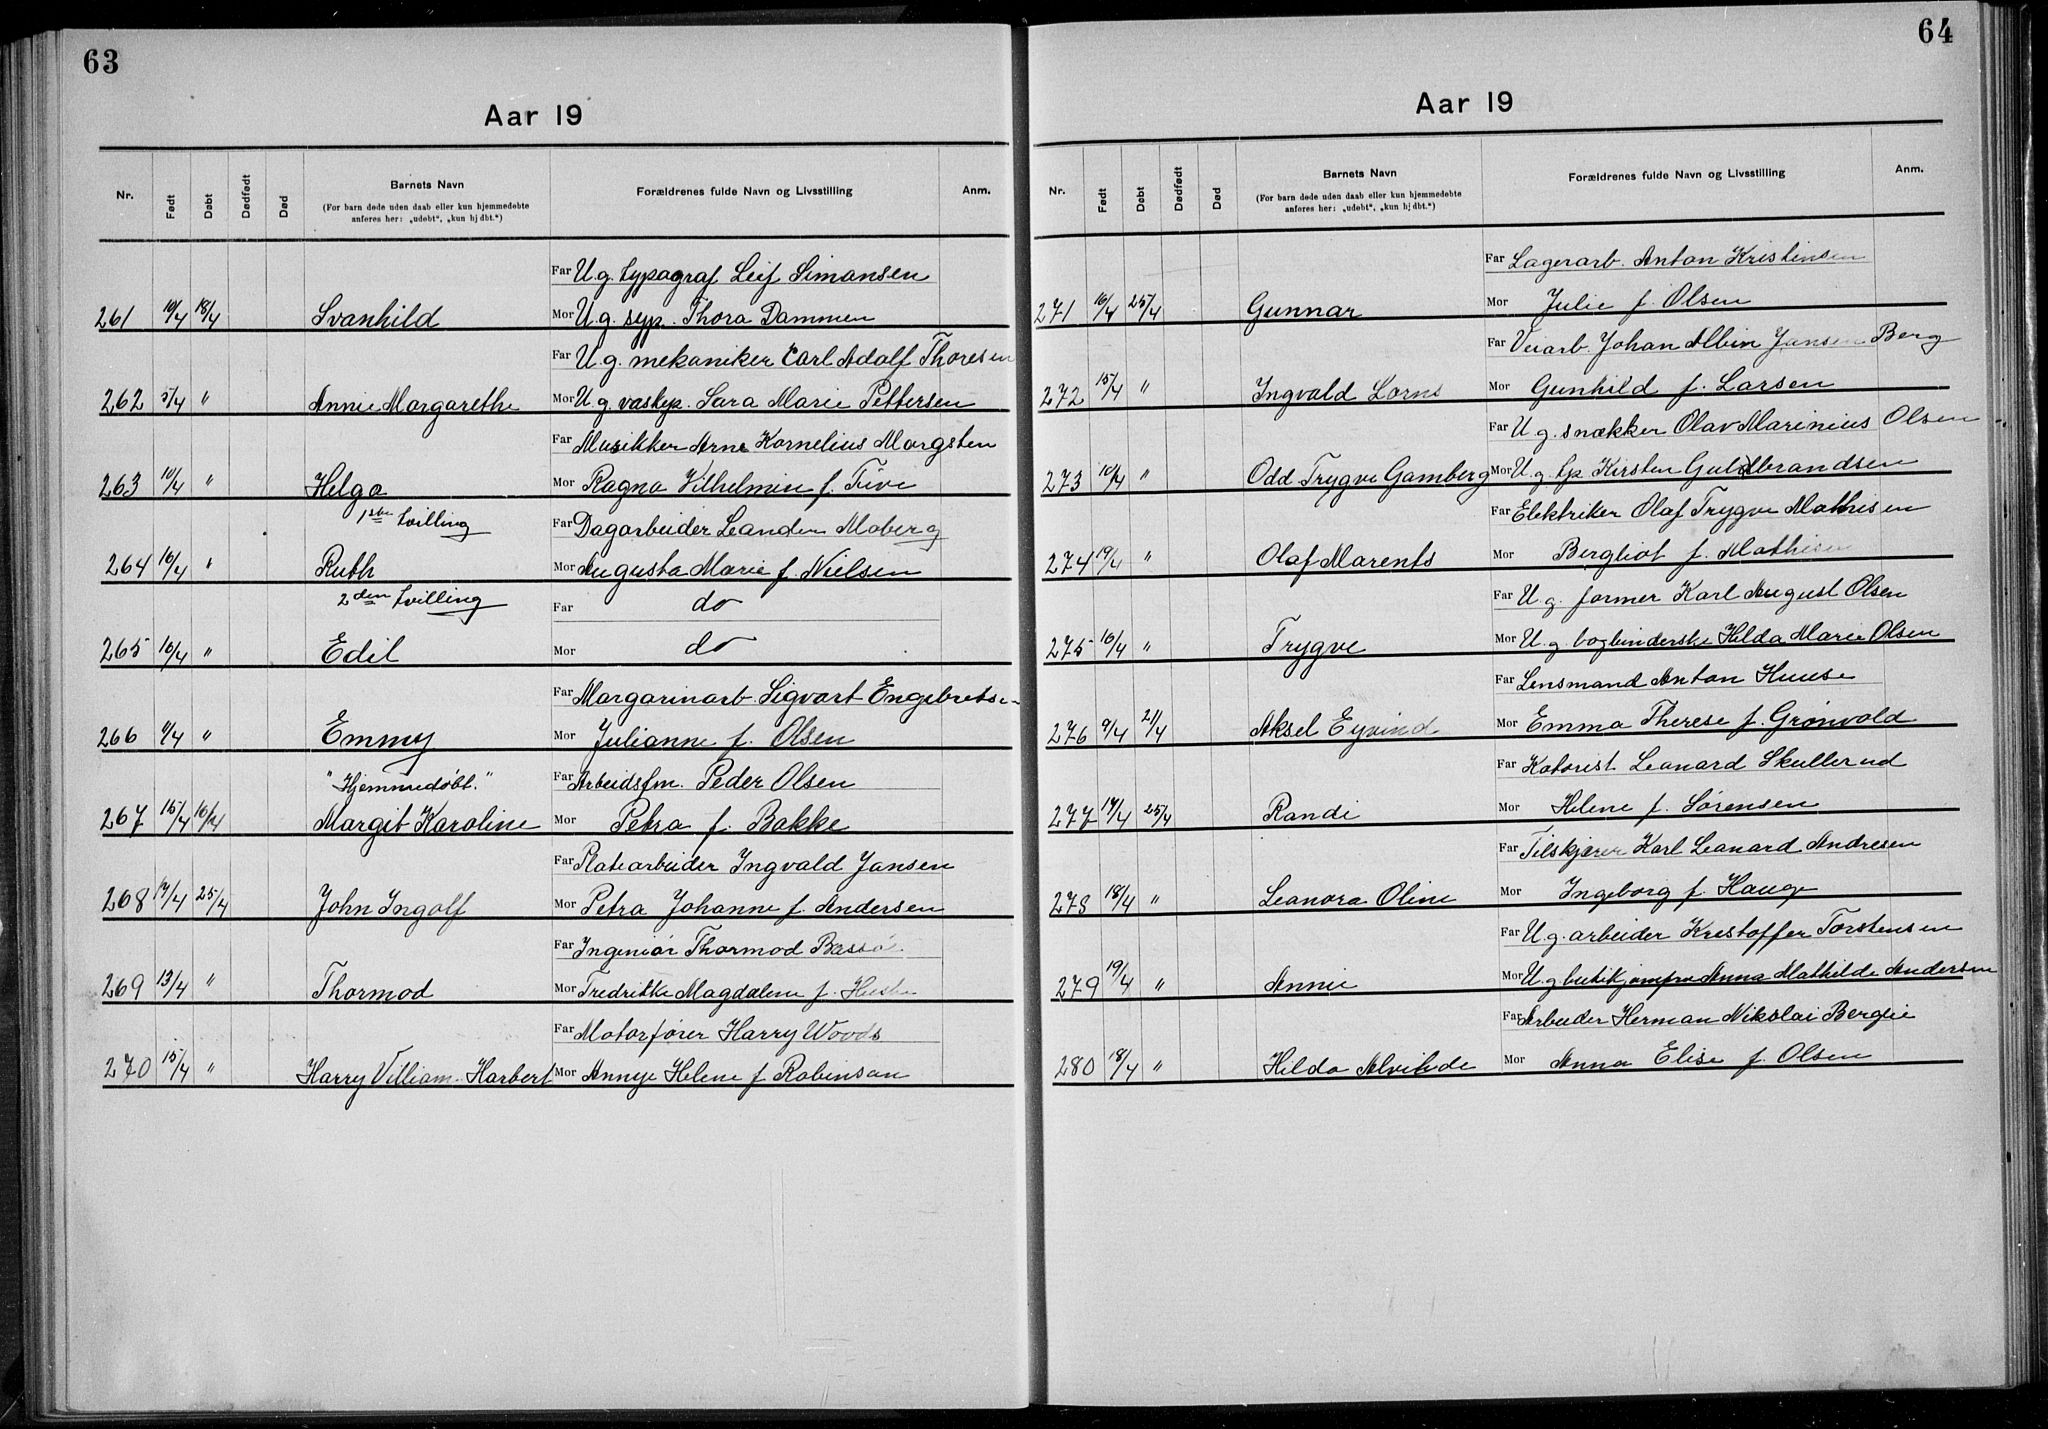 63
Aar 19
Nr. Født Døbt Dødfødt Død Barnets Navn Forældrenes fulde Navn og Livsstilling Anm.
(For barn døde uden daab eller kun hjemmedøbte
anføres her: „udøbt“, „kun hj dbt.“)
Far U.g. typograf Leif Simonsen
261 10/4 18/4 Svanhild Mor U.g. syp. Thora Dammen
Far U.g. mekaniker Carl Adolf Thoresen
262 5/4 " Annie Margarethe Mor U.g. vaskep. Sara Marie Pettersen
Far Musikker Arne Kornelius Morgsten
263 10/4 " Helga Mor Ragna Vilhelmine f. Tüvi
1ste tvilling Far Dagarbeider Leander Moberg
264 16/4 " Ruth Mor Augusta Marie f. Nielsen
2den tvilling Far do
265 16/4 " Edil Mor do
Far Margarinarb. Sigvart Engebretse
266 11/4 " Emmy Mor Julianne f. Olsen
"Hjemmedøbt." Far Arbeidsfm. Peder Olsen
267 15/4 16/4 Margit Karoline Mor Petra f. Bakke
Far Platearbeider Ingvald Jansen
268 17/4 25/4 John Ingolf Mor Petra Johanne f. Andersen
Far Ingeniør Thormod Bassø
269 13/4 " Thormod Mor Fredrikke Magdalene f.
Far Motorfører Harry Woods
270 15/4 " Harry Villiam Harbert Mor Annye Helene f Robinson
64
Aar 19
Nr. Født Døbt Dødfødt Død Barnets Navn Forældrenes fulde Navn og Livsstilling Anm.
(For barn døde uden daab eller kun hjemmedøbte
anføres her: „udøbt“, „kun hj dbt.“)
Far Lagerarb. Anton Kristinsen
271 16/4 25/4 Gunnar Mor Julie f. Olsen
Far Veiarb. Johan Albin Jansen Berg
272 15/4 " Ingvald Lorns Mor Gunhild f. Larsen
Far U.g. snekker Olav Marinius Olsen
273 10/4 " Odd Trygve Gamberg Mor U.g. tp Kirsten Guldbrandsen
Far Elektriker Olaf Trygve Mathisen
274 19/4 " Olaf Marents Mor Bergliot f. Mathisen
Far U.g. former Karl August Olsen
275 16/4 " Trygve Mor U.g. bogbinderske Hilda Marie Olsen
Far Lensmand Anton Huuse
276 9/4 21/4 Aksel Eyvind Mor Emma Therese f. Grønvold
Far Kotorist Leonard Skullerud
277 17/4 25/4 Randi Mor Helene f. Sørensen
Far Tilskjærer Karl Leonard Andresen
278 18/4 " Leonora Oline Mor Ingeborg f. Hauge
Far U.g. arbeider Kristoffer Torstensen
279 19/4 " Annie Mor U.g butikjomfru Anna Mathilde Andersen
Far Arbeider Herman Nikolai Berglie
280 18/4 " Hilda Alvilde Mor Anna Elise f. Olsen